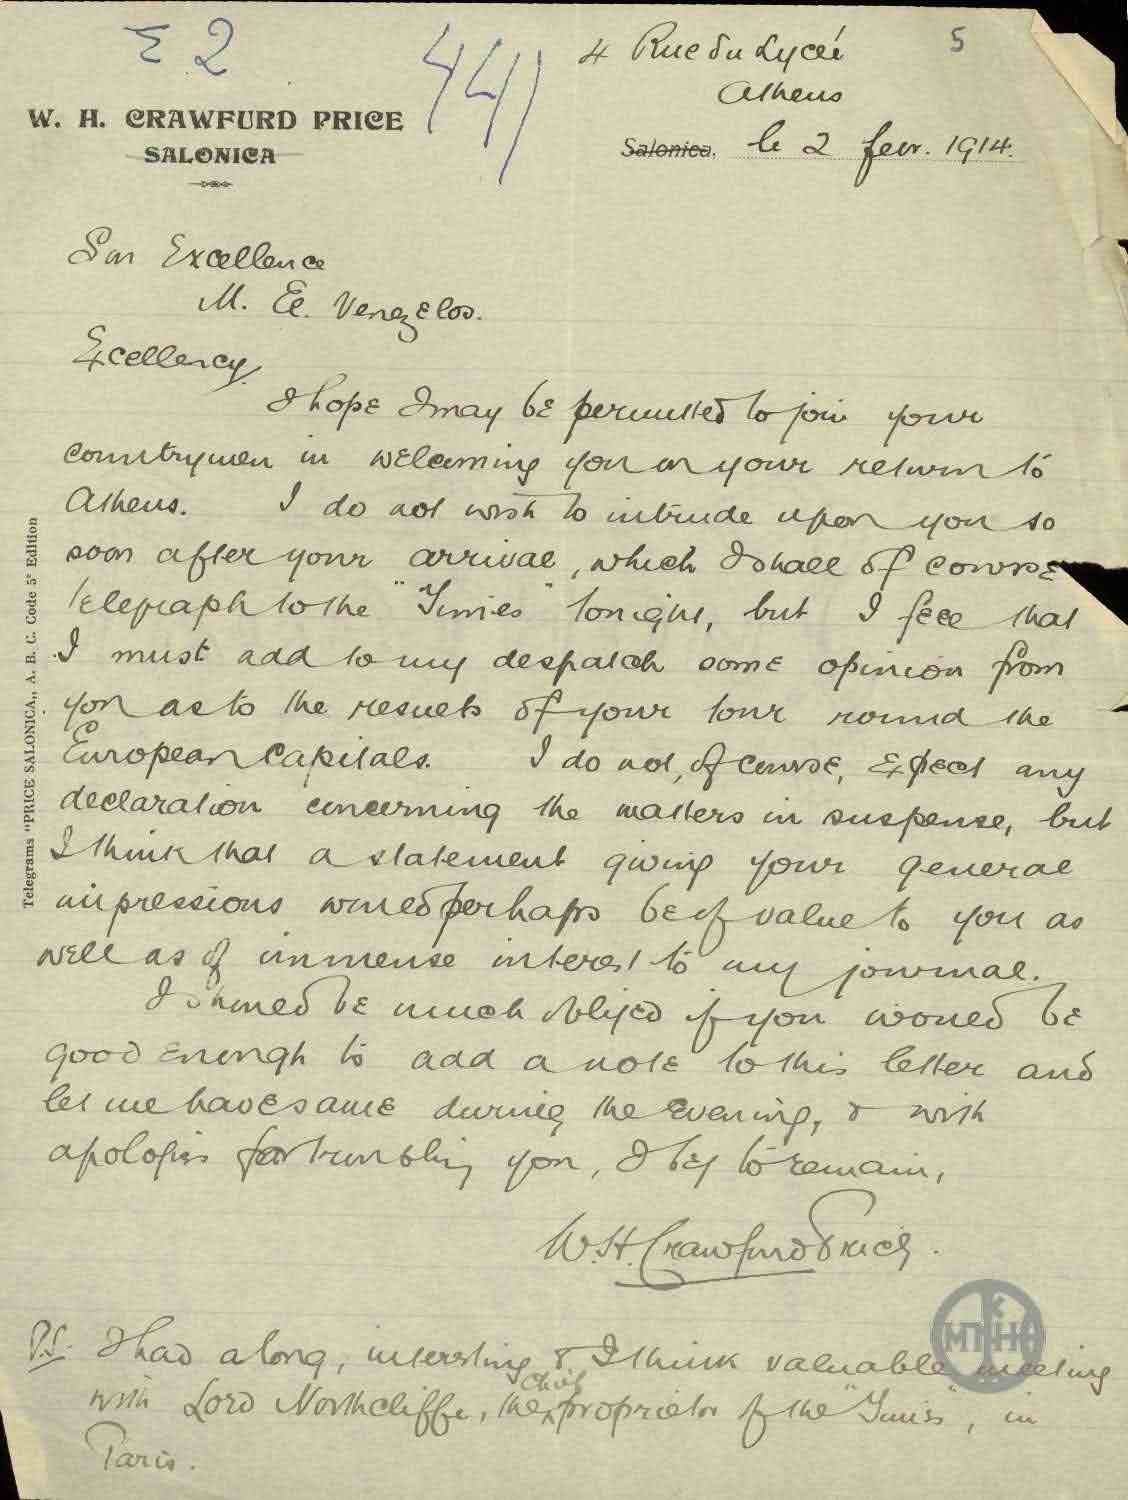 Σ 2
441
5
W. H. CRAWFURD PRICE
SALONICA
4 Rue du Lyceé
Athens
Salonica, le 2 fevr. 1914.
Son Excellence
M. El. Venezelos.
Excellency,
I hope I may be permitted to join your
countrymen in welcoming you on your return to
Athens. I do not wish to intrude upon you so
soon after your arrival, which I shall of course
telegraph to the "Times" tonight, but I feel that
I must add to my despatch some opinion from
you as to the results of your tour round the
European Capitals. I do not, of course, expect any
declaration concerning the matters in suspense, but
I think that a statement giving your general
impressions would perhaps be of value to you as
well as of immense interest to my journal.
I should be much obliged if you would be
good enough to add a note to this letter and
let me have same during the evening, & with
apologies for troubling you, I beg to remain,
W. H. Crawfurd Price.
P.S. I had a long, interesting & I think valuable meeting
with Lord Northcliffe, the chief proprietor of the "Times", in
Paris.
Telegrams "PRICE SALONICA,, A. B. C. Code 5e Edition